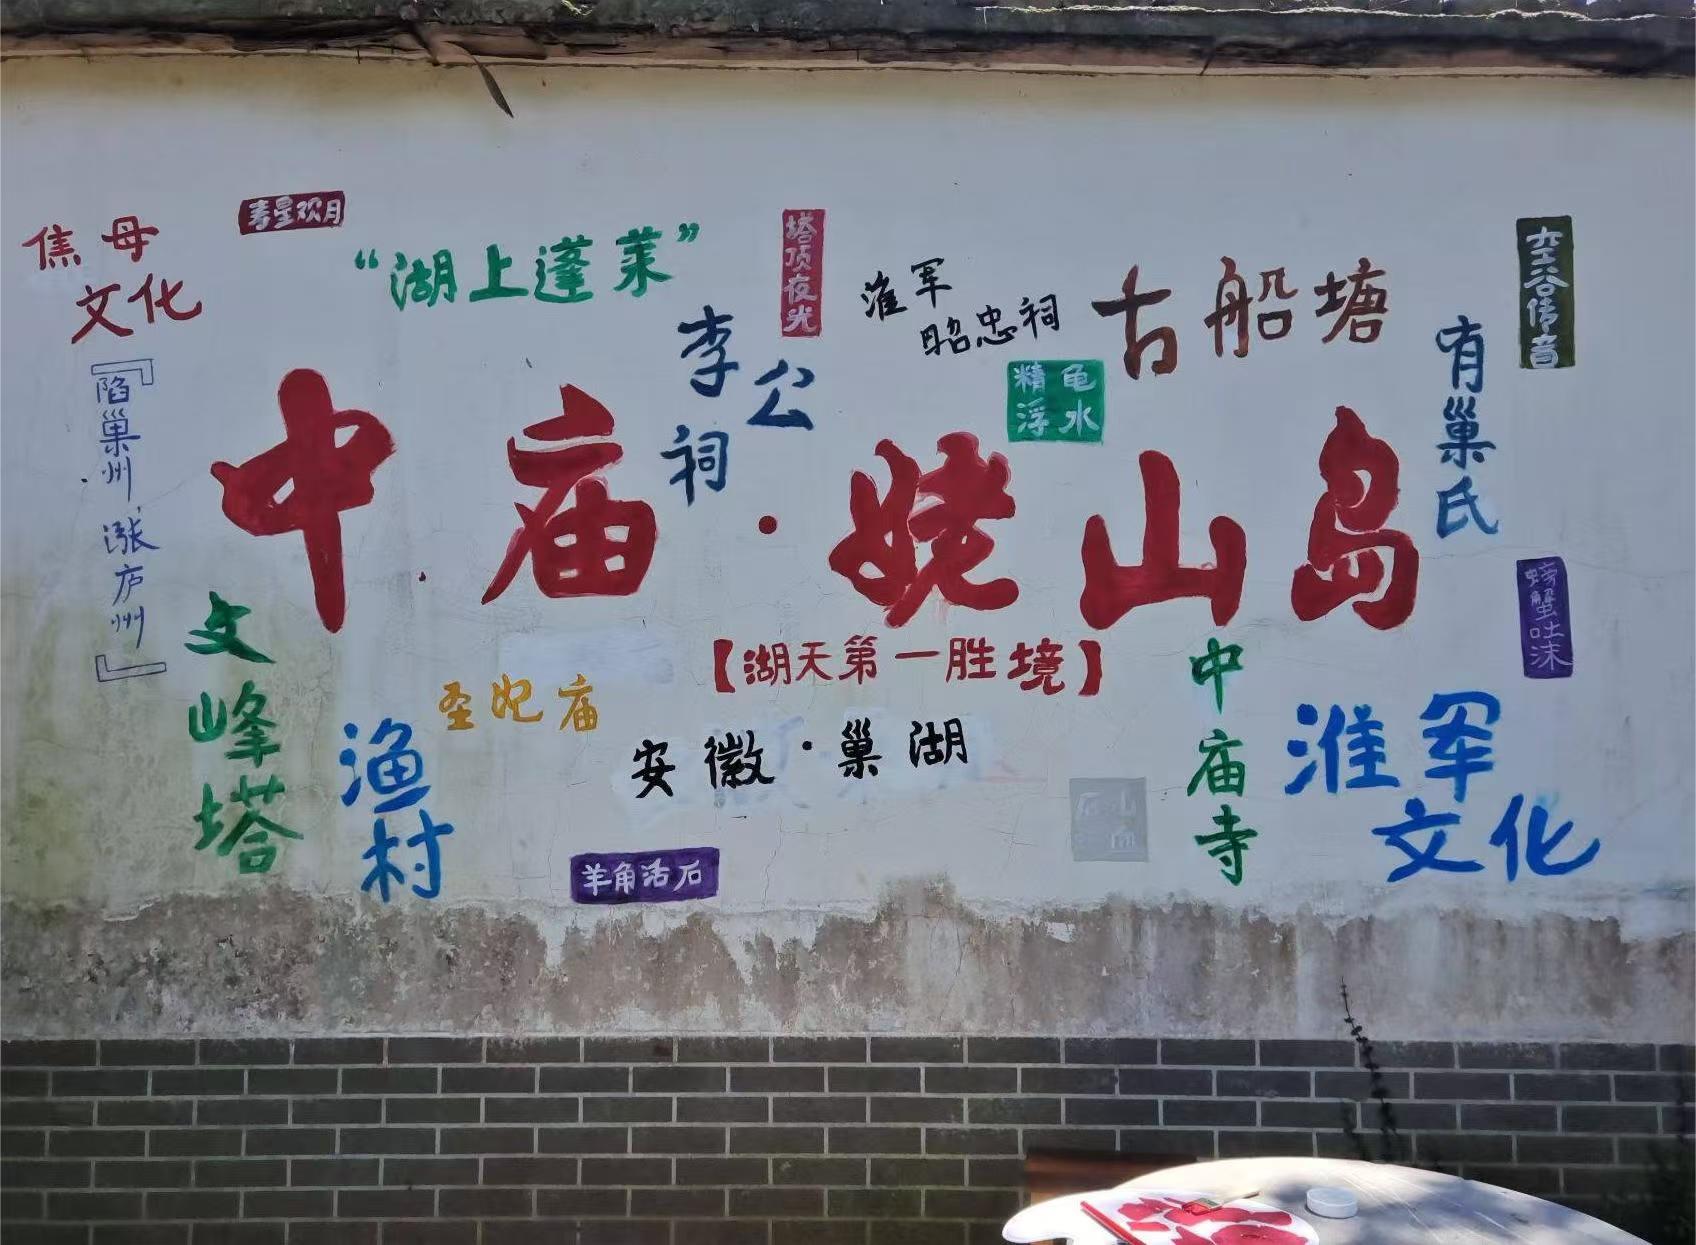 焦母
文化
寿星观月
“湖上蓬莱”
塔顶夜光
淮军
昭忠祠
古船塘
空谷传音
李公祠
精龟
浮水
有巢氏
『陷巢州,涨庐州』
中庙·姥山岛
螃蟹吐沫
【湖天第一胜境】
文峰塔
渔村
圣妃庙
安徽·巢湖
中庙寺
淮军
文化
羊角活石